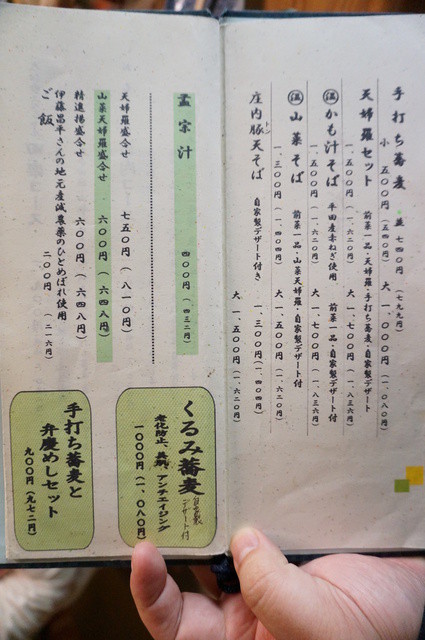 手打ち蕎麦
小 五〇〇円（五四〇円） 並 七四〇円（七九九円） 大 一、〇〇〇円（一、〇八〇円）
天婦羅セット 前菜一品・天婦羅・手打ち蕎麦・自家製デザート
一、五〇〇円（一、六二〇円） 大 一、七〇〇円（一、八三六円）
温かも汁そば 平田産赤ねぎ使用 前菜一品・自家製デザート付
一、五〇〇円（一、六二〇円） 大 一、七〇〇円（一、八三六円）
温山菜そば 前菜一品・山菜天婦羅・自家製デザート付
一、三〇〇円（一、四〇四円） 大 一、五〇〇円（一、六二〇円）
庄内豚天そば 自家製デザート付き 一、三〇〇円（一、四〇四円）
トン
大 一、五〇〇円（一、六二〇円）
孟宗汁 四〇〇円（四三二円）
天婦羅盛合せ 七五〇円（八一〇円）
山菜天婦羅盛合せ 六〇〇円（六四八円）
精進揚盛合せ 六〇〇円（六四八円）
伊藤昌平さんの地元産減農薬のひとめぼれ使用
ご飯 二〇〇円（二一六円）
くるみ蕎麦 自家製デザート付
老化防止、美肌、アンチエイジング
一〇〇〇円（一、〇八〇円）
手打ち蕎麦と
弁慶めしセット
九〇〇円（九七二円）